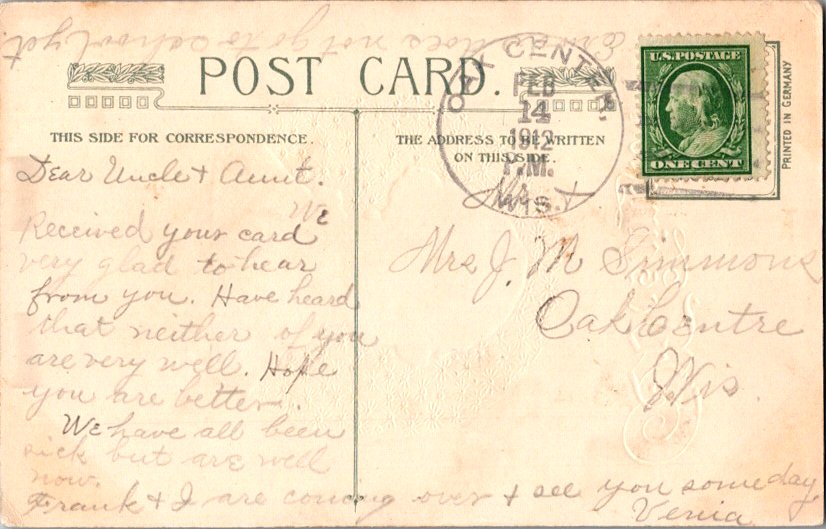 does not go to school yet
POST CARD.
THIS SIDE FOR CORRESPONDENCE.
THE ADDRESS TO BE WRITTEN
ON THIS SIDE.
OAK CENTER,
FEB
14
1912
P.M.
WIS.
U.S. POSTAGE
ONE CENT
PRINTED IN GERMANY
Dear Uncle & Aunt.
We
Received your card
very glad to hear
from you. Have heard
that neither of you
are very well. Hope
you are better.
We have all been
sick but are well
now.
Frank & I are coming over & see you someday
Venia
Mr. &
Mrs J. M Simmons
Oak Centre
Wis.